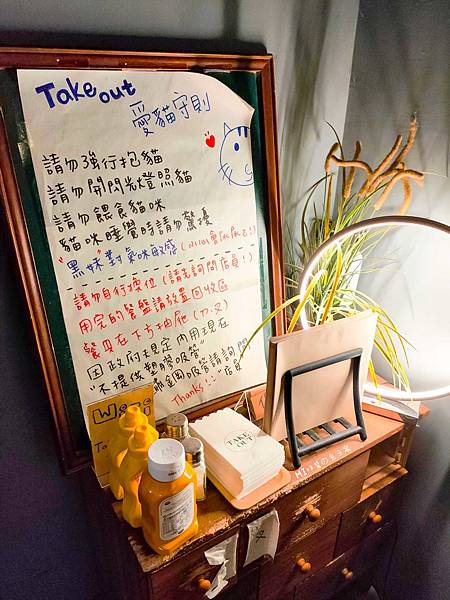 Take out
愛貓守則
請勿強行抱貓
請勿開閃光燈照貓
請勿餵食貓咪
貓咪睡覺時請勿驚擾
黑妹對氣味敏感
請勿自行換位(請先詢問店員!)
用完的餐盤請放置回收區
餐具在下方抽屜(刀.叉)
因政府規定內用現在
"不提供塑膠吸管"
吸管請詢問
店員
Thanks!!
TAKE
OUT